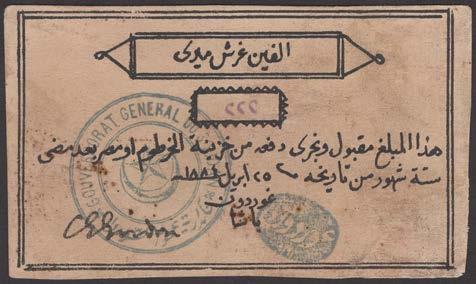 الفين غرش ميرى
222
هذا المبلغ مقبول ويجرى دفعه من خزينة الخرطوم او مصر بعد مضى
ستة شهور من تاريخه ٢٥ ابريل ١٨٨٤
غوردون
باشا
C G Gordon
GOUVERNORAT GENERAL DU